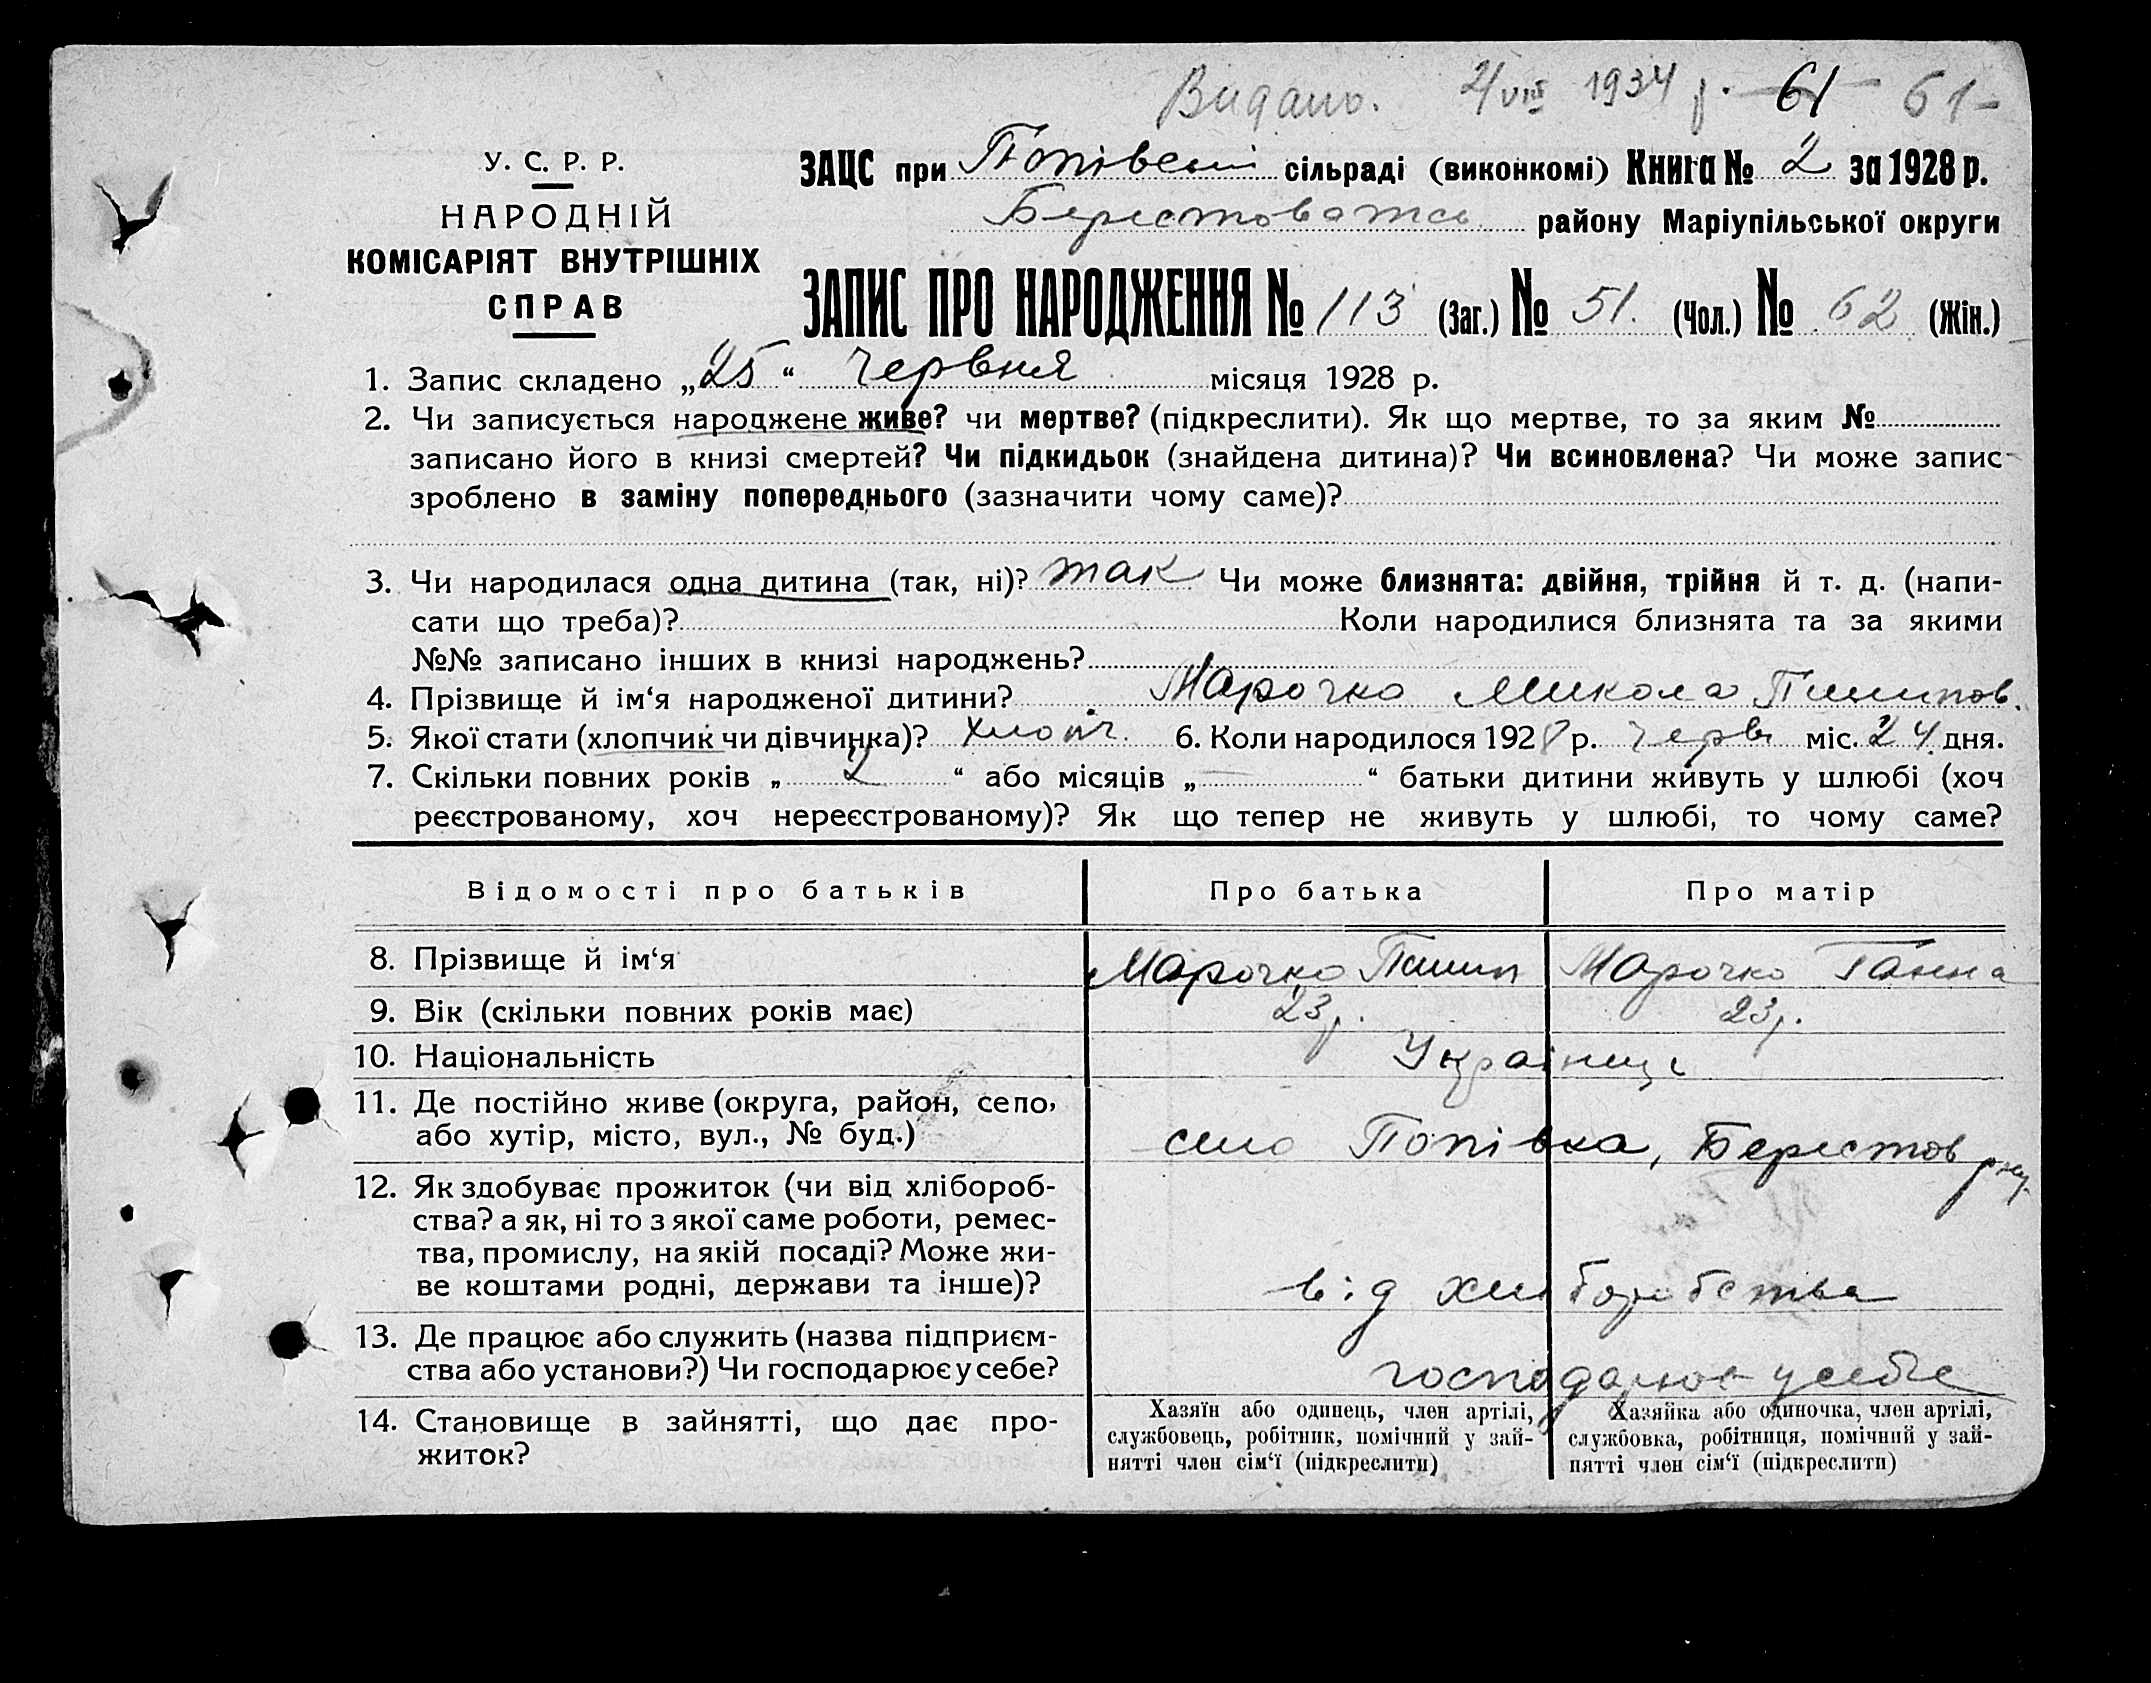 Видано. 21/VIII 1934 р. 61 61-
У. С. Р. Р.
НАРОДНІЙ
КОМІСАРІЯТ ВНУТРІШНІХ
СПРАВ
ЗАЦС при Попівські сільраді (виконкомі) Книга № 2 за 1928 р.
району Маріупільської округи
ЗАПИС ПРО НАРОДЖЕННЯ № 113 (Заг.) № 51. (Чол.) № 62 (Жін.)
1. Запис складено „25“ Червня місяця 1928 р.
2. Чи записується народжене живе? чи мертве? (підкреслити). Як що мертве, то за яким №
записано його в книзі смертей? Чи підкидьок (знайдена дитина)? Чи всиновлена? Чи може запис
зроблено в заміну попереднього (зазначити чому саме)?
3. Чи народилася одна дитина (так, ні)? так Чи може близнята: двійня, трійня й т. д. (напи-
сати що треба)? Коли народилися близнята та за якими
№№ записано інших в книзі народжень?
4. Прізвище й ім‘я народженої дитини? Марочко Микола Пилипов.
5. Якої стати (хлопчик чи дівчинка)? Хлопч. 6. Коли народилося 1928 р. черв міс. 24 дня.
7. Скільки повних років „ 2 “ або місяців „ — “ батьки дитини живуть у шлюбі (хоч
реєстрованому, хоч нереєстрованому)? Як що тепер не живуть у шлюбі, то чому саме?
Відомості про батьків Про батька Про матір
8. Прізвище й ім‘я Марочко Пилип Марочко Ганна
9. Вік (скільки повних років має) 23 р. 23 р.
10. Національність Українці
11. Де постійно живе (округа, район, село,
або хутір, місто, вул., № буд.) село Попівка, Берестов
12. Як здобуває прожиток (чи від хлібороб-
ства? а як, ні то з якої саме роботи, ремес-
тва, промислу, на якій посаді? Може жи-
ве коштами родні, держави та інше)? від хліборобства
13. Де працює або служить (назва підприєм-
ства або установи?) Чи господарює у себе? господарює у себе
14. Становище в зайнятті, що дає про-
житок?
Хазяїн або одинець, член артілі,
службовець, робітник, помічний у зай-
нятті член сім‘ї (підкреслити)
Хазяйка або одиночка, член артілі,
службовка, робітниця, помічний у зай-
нятті член сім‘ї (підкреслити)